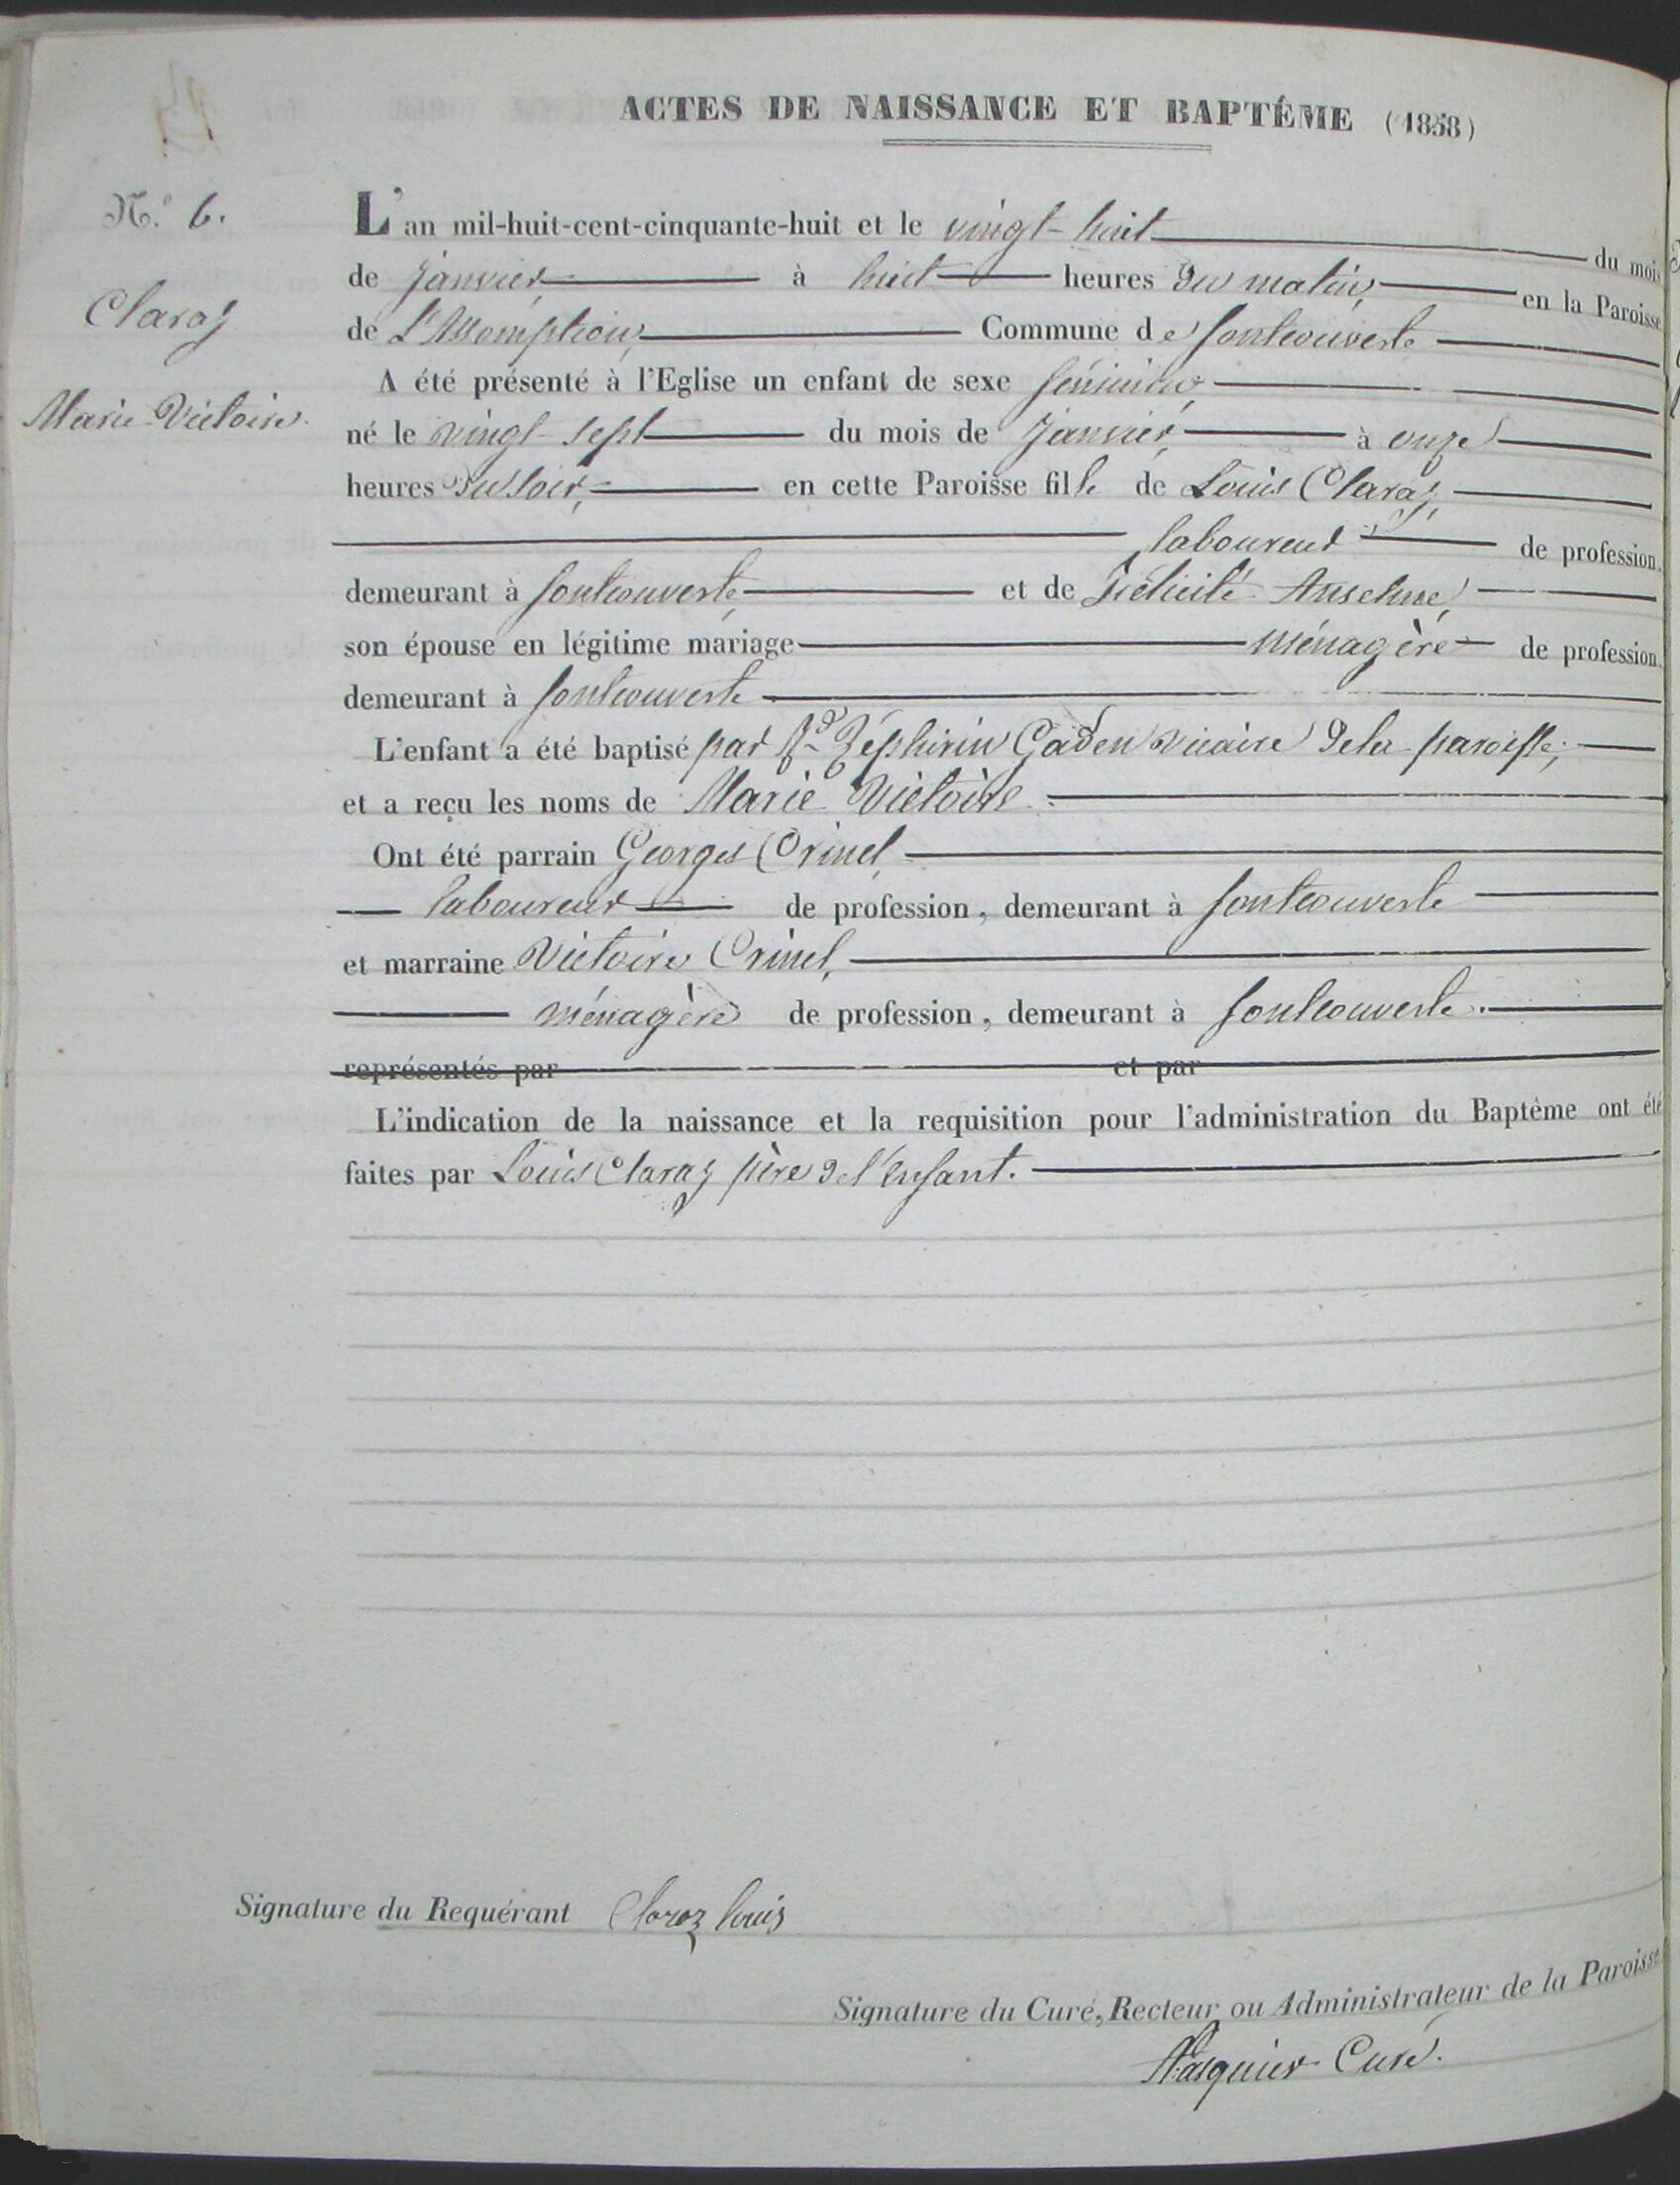 ACTES DE NAISSANCE ET BAPTÊME (1858)
N.º 6.
Claraz
Marie Victoire.
L'an mil-huit-cent-cinquante-huit et le vingt-huit du mois
de Janvier à huit heures du matin, en la Paroisse
de L'Assomption, Commune de fontcouverte
A été présenté à l'Eglise un enfant de sexe féminin,
né le vingt-sept du mois de Janvier, à onze
heures du soir, en cette Paroisse fille de Louis Claraz,
laboureur de profession,
demeurant à fontcouverte, et de Félicité Anselme,
son épouse en légitime mariage ménagère de profession,
demeurant à fontcouverte
L'enfant a été baptisé par Rd Zéphirin Gaden vicaire de la paroisse,
et a reçu les noms de Marie Victoire
Ont été parrain Georges Orinel,
laboureur de profession, demeurant à fontcouverte
et marraine Victoire Orinel,
ménagère de profession, demeurant à fontcouverte.
représentés par et par
L'indication de la naissance et la requisition pour l'administration du Baptême ont été
faites par Louis Claraz père de l'enfant.
Signature du Requérant Claroz louis
Signature du Curé, Recteur ou Administrateur de la Paroisse
Curé.